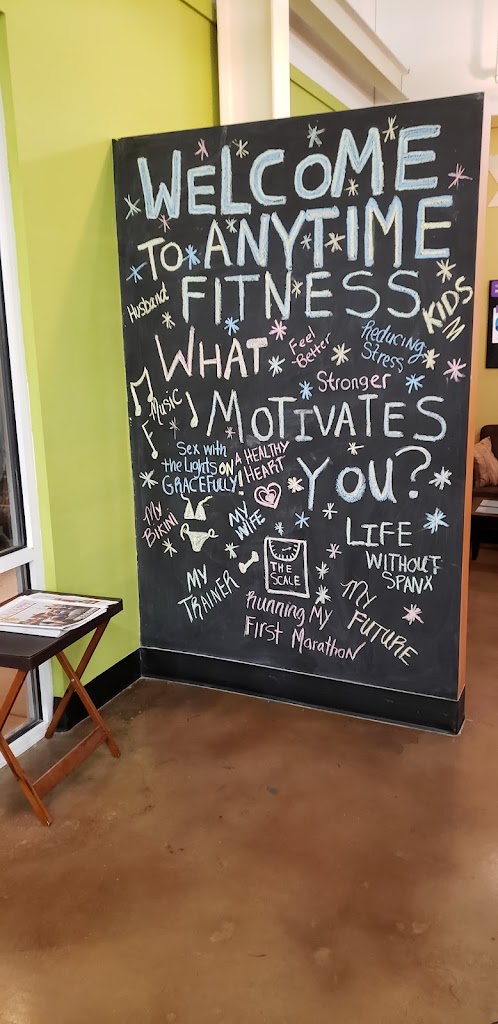 WELCOME
TO ANYTIME
FITNESS
Husband
KIDS
WHAT
Feel
Better
Reducing
Stress
Stronger
MUSIC
MOTIVATES
YOU?
Sex with
the Lights ON
GRACEFULLY!
A HEALTHY
HEART
My
BIKINI
MY
WIFE
LIFE
WITHOUT
SPANX
THE
SCALE
MY
TRAINER
Running My
First Marathon
MY
FUTURE